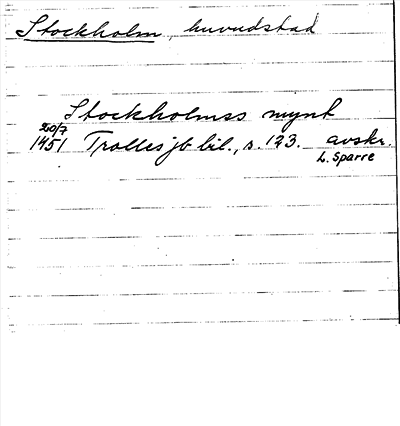 Stockholm, huvudstad
Stockholmss mynt
20/7
1451 Trolles jb bil., s. 123. avskr.
L. Sparre